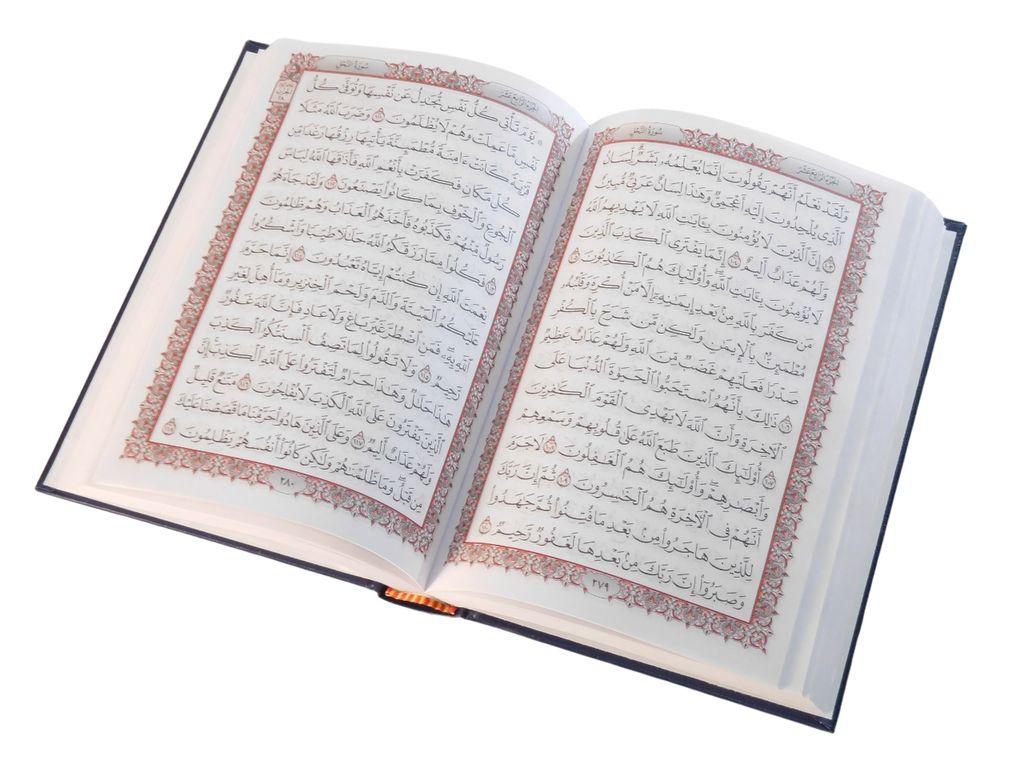 الجزء الرابع عشر
سورة النحل
وَلَقَدْ نَعْلَمُ أَنَّهُمْ يَقُولُونَ إِنَّمَا يُعَلِّمُهُۥ بَشَرٌ لِّسَانُ
ٱلَّذِى يُلْحِدُونَ إِلَيْهِ أَعْجَمِىٌّ وَهَٰذَا لِسَانٌ عَرَبِىٌّ مُّبِينٌ
١٠٣ إِنَّ ٱلَّذِينَ لَا يُؤْمِنُونَ بِـَٔايَٰتِ ٱللَّهِ لَا يَهْدِيهِمُ ٱللَّهُ
وَلَهُمْ عَذَابٌ أَلِيمٌ ١٠٤ إِنَّمَا يَفْتَرِى ٱلْكَذِبَ ٱلَّذِينَ
لَا يُؤْمِنُونَ بِـَٔايَٰتِ ٱللَّهِ وَأُو۟لَٰٓئِكَ هُمُ ٱلْكَٰذِبُونَ ١٠٥
مَن كَفَرَ بِٱللَّهِ مِنۢ بَعْدِ إِيمَٰنِهِۦٓ إِلَّا مَنْ أُكْرِهَ وَقَلْبُهُۥ
مُطْمَئِنٌّۢ بِٱلْإِيمَٰنِ وَلَٰكِن مَّن شَرَحَ بِٱلْكُفْرِ
صَدْرًا فَعَلَيْهِمْ غَضَبٌ مِّنَ ٱللَّهِ وَلَهُمْ عَذَابٌ عَظِيمٌ
١٠٦ ذَٰلِكَ بِأَنَّهُمُ ٱسْتَحَبُّوا۟ ٱلْحَيَوٰةَ ٱلدُّنْيَا عَلَى
ٱلْءَاخِرَةِ وَأَنَّ ٱللَّهَ لَا يَهْدِى ٱلْقَوْمَ ٱلْكَٰفِرِينَ
١٠٧ أُو۟لَٰٓئِكَ ٱلَّذِينَ طَبَعَ ٱللَّهُ عَلَىٰ قُلُوبِهِمْ وَسَمْعِهِمْ
وَأَبْصَٰرِهِمْ وَأُو۟لَٰٓئِكَ هُمُ ٱلْغَٰفِلُونَ ١٠٨ لَا جَرَمَ
أَنَّهُمْ فِى ٱلْءَاخِرَةِ هُمُ ٱلْخَٰسِرُونَ ١٠٩ ثُمَّ إِنَّ رَبَّكَ
لِلَّذِينَ هَاجَرُوا۟ مِنۢ بَعْدِ مَا فُتِنُوا۟ ثُمَّ جَٰهَدُوا۟
وَصَبَرُوٓا۟ إِنَّ رَبَّكَ مِنۢ بَعْدِهَا لَغَفُورٌ رَّحِيمٌ ١١٠
٢٧٩
الجزء الرابع عشر
سورة النحل
۞ يَوْمَ تَأْتِى كُلُّ نَفْسٍ تُجَٰدِلُ عَن نَّفْسِهَا وَتُوَفَّىٰ كُلُّ
نَفْسٍ مَّا عَمِلَتْ وَهُمْ لَا يُظْلَمُونَ ١١١ وَضَرَبَ ٱللَّهُ مَثَلًا
قَرْيَةً كَانَتْ ءَامِنَةً مُّطْمَئِنَّةً يَأْتِيهَا رِزْقُهَا رَغَدًا مِّن
كُلِّ مَكَانٍ فَكَفَرَتْ بِأَنْعُمِ ٱللَّهِ فَأَذَٰقَهَا ٱللَّهُ لِبَاسَ
ٱلْجُوعِ وَٱلْخَوْفِ بِمَا كَانُوا۟ يَصْنَعُونَ ١١٢ وَلَقَدْ جَآءَهُمْ
رَسُولٌ مِّنْهُمْ فَكَذَّبُوهُ فَأَخَذَهُمُ ٱلْعَذَابُ وَهُمْ ظَٰلِمُونَ
١١٣ فَكُلُوا۟ مِمَّا رَزَقَكُمُ ٱللَّهُ حَلَٰلًا طَيِّبًا وَٱشْكُرُوا۟
نِعْمَتَ ٱللَّهِ إِن كُنتُمْ إِيَّاهُ تَعْبُدُونَ ١١٤ إِنَّمَا حَرَّمَ
عَلَيْكُمُ ٱلْمَيْتَةَ وَٱلدَّمَ وَلَحْمَ ٱلْخِنزِيرِ وَمَآ أُهِلَّ لِغَيْرِ
ٱللَّهِ بِهِۦ فَمَنِ ٱضْطُرَّ غَيْرَ بَاغٍ وَلَا عَادٍ فَإِنَّ ٱللَّهَ غَفُورٌ
رَّحِيمٌ ١١٥ وَلَا تَقُولُوا۟ لِمَا تَصِفُ أَلْسِنَتُكُمُ ٱلْكَذِبَ
هَٰذَا حَلَٰلٌ وَهَٰذَا حَرَامٌ لِّتَفْتَرُوا۟ عَلَى ٱللَّهِ ٱلْكَذِبَ إِنَّ
ٱلَّذِينَ يَفْتَرُونَ عَلَى ٱللَّهِ ٱلْكَذِبَ لَا يُفْلِحُونَ ١١٦ مَتَٰعٌ قَلِيلٌ
وَلَهُمْ عَذَابٌ أَلِيمٌ ١١٧ وَعَلَى ٱلَّذِينَ هَادُوا۟ حَرَّمْنَا مَا قَصَصْنَا عَلَيْكَ
مِن قَبْلُ وَمَا ظَلَمْنَٰهُمْ وَلَٰكِن كَانُوٓا۟ أَنفُسَهُمْ يَظْلِمُونَ ١١٨
٢٨٠